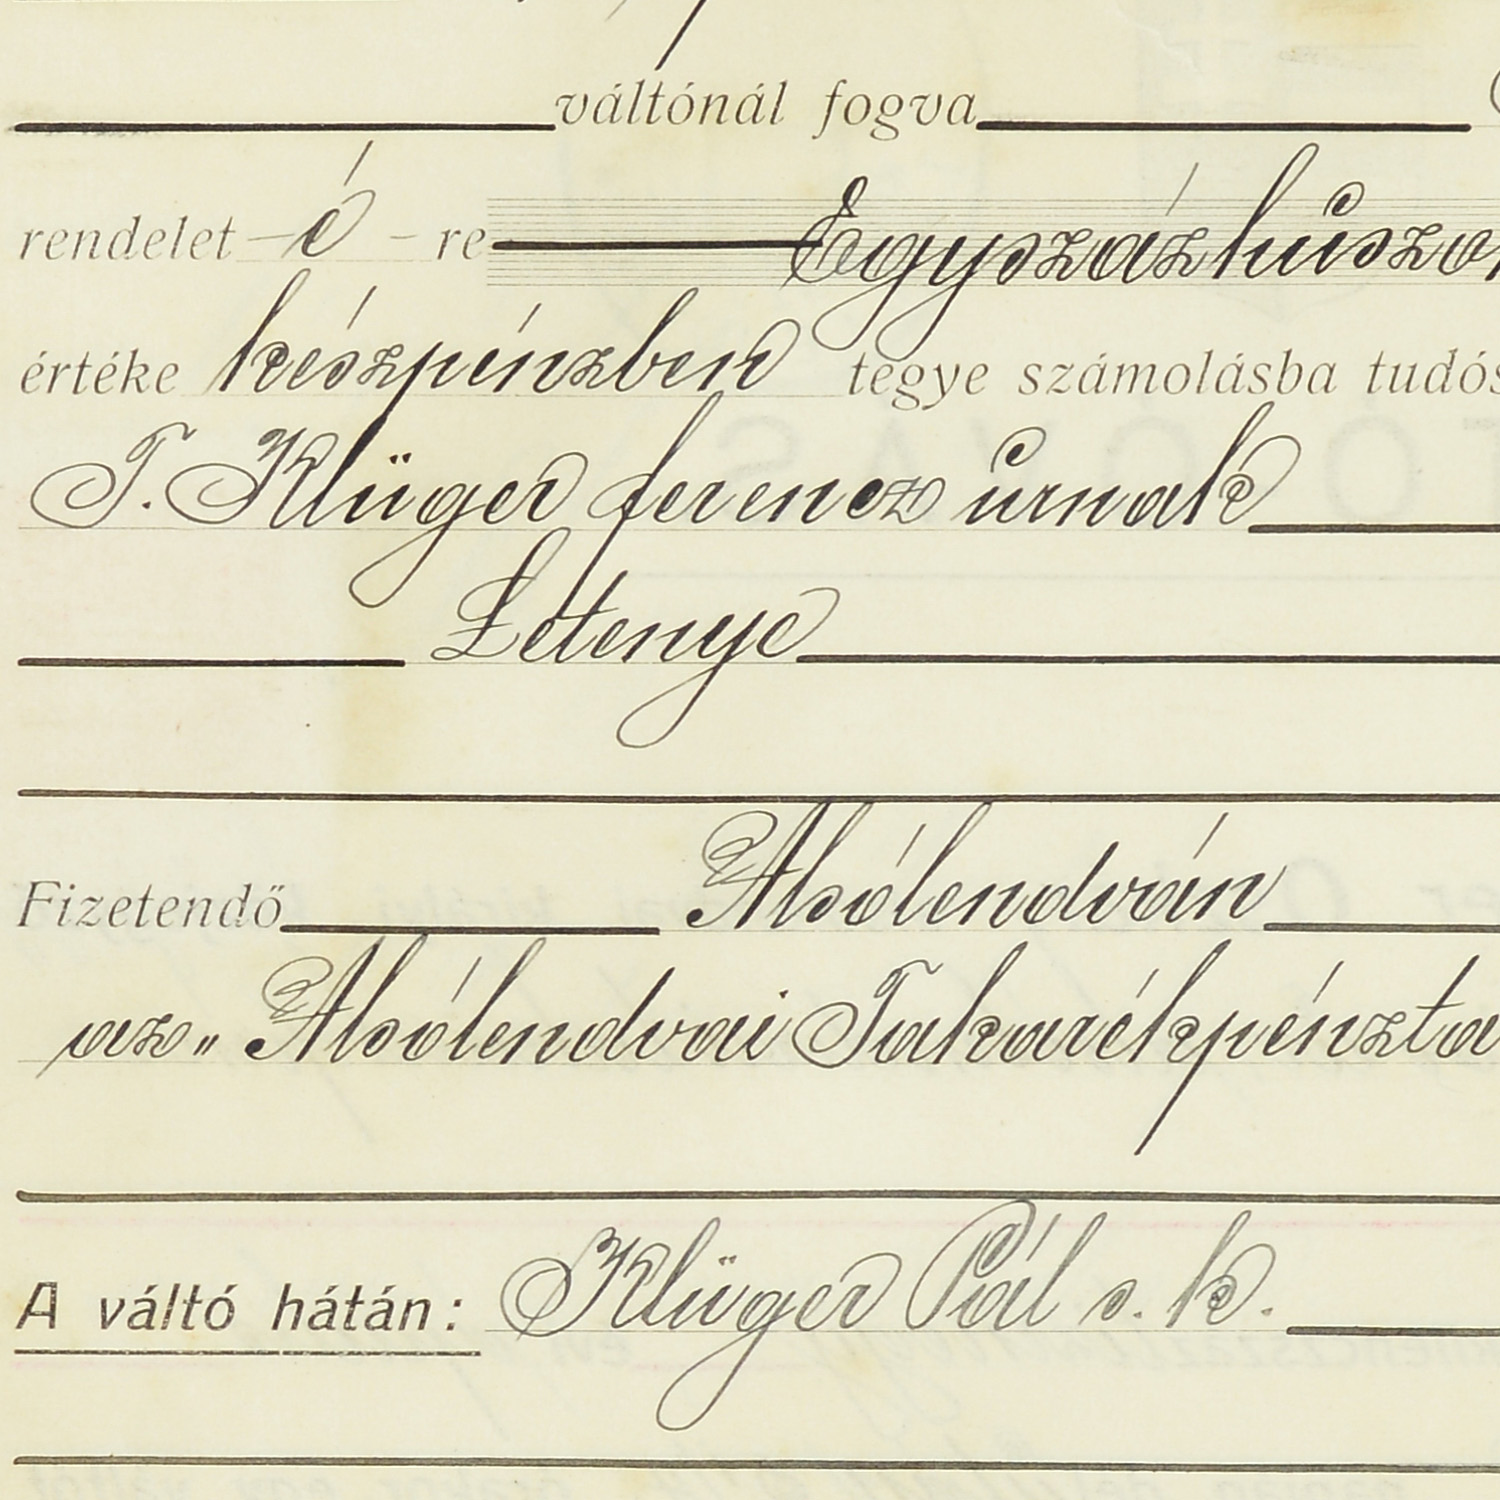 váltónál fogva
rendelet – é – re Egyszázhúszo
értéke készpénzben tegye számolásba tudós
T. Klüger ferencz úrnak
Letenye
Fizetendő Alsólendván
az „Alsólendvai Takarékpénzta
A váltó hátán: Klüger Pál s. k.